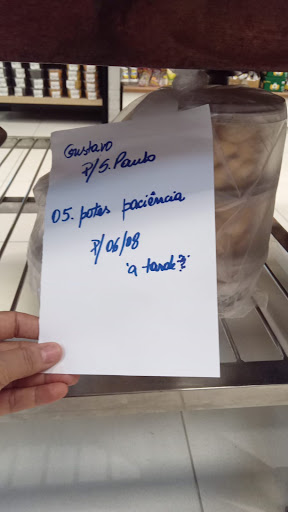 Gustavo
P/ S. Paulo
05. potes paciência
P/ 06/08
'a tarde?